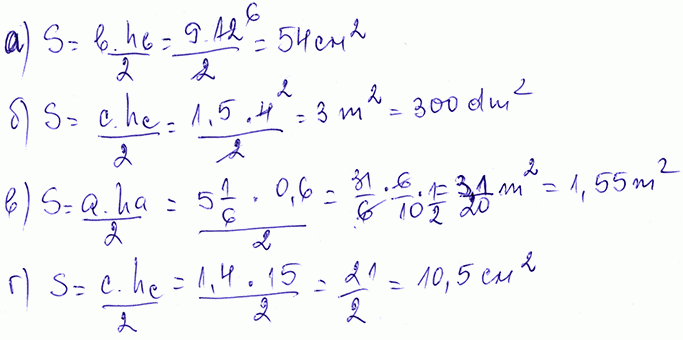 а) S = b.hb/2 = 9.12⁶/2 = 54 см²
б) S = c.hc/2 = 1,5.4²/2 = 3 m² = 300 dm²
в) S = a.ha/2 = 5 1/6 . 0,6/2 = 31/6 . 6/10 . 1/2 = 31/20 m² = 1,55 m²
г) S = c.hc/2 = 1,4.15/2 = 21/2 = 10,5 см²